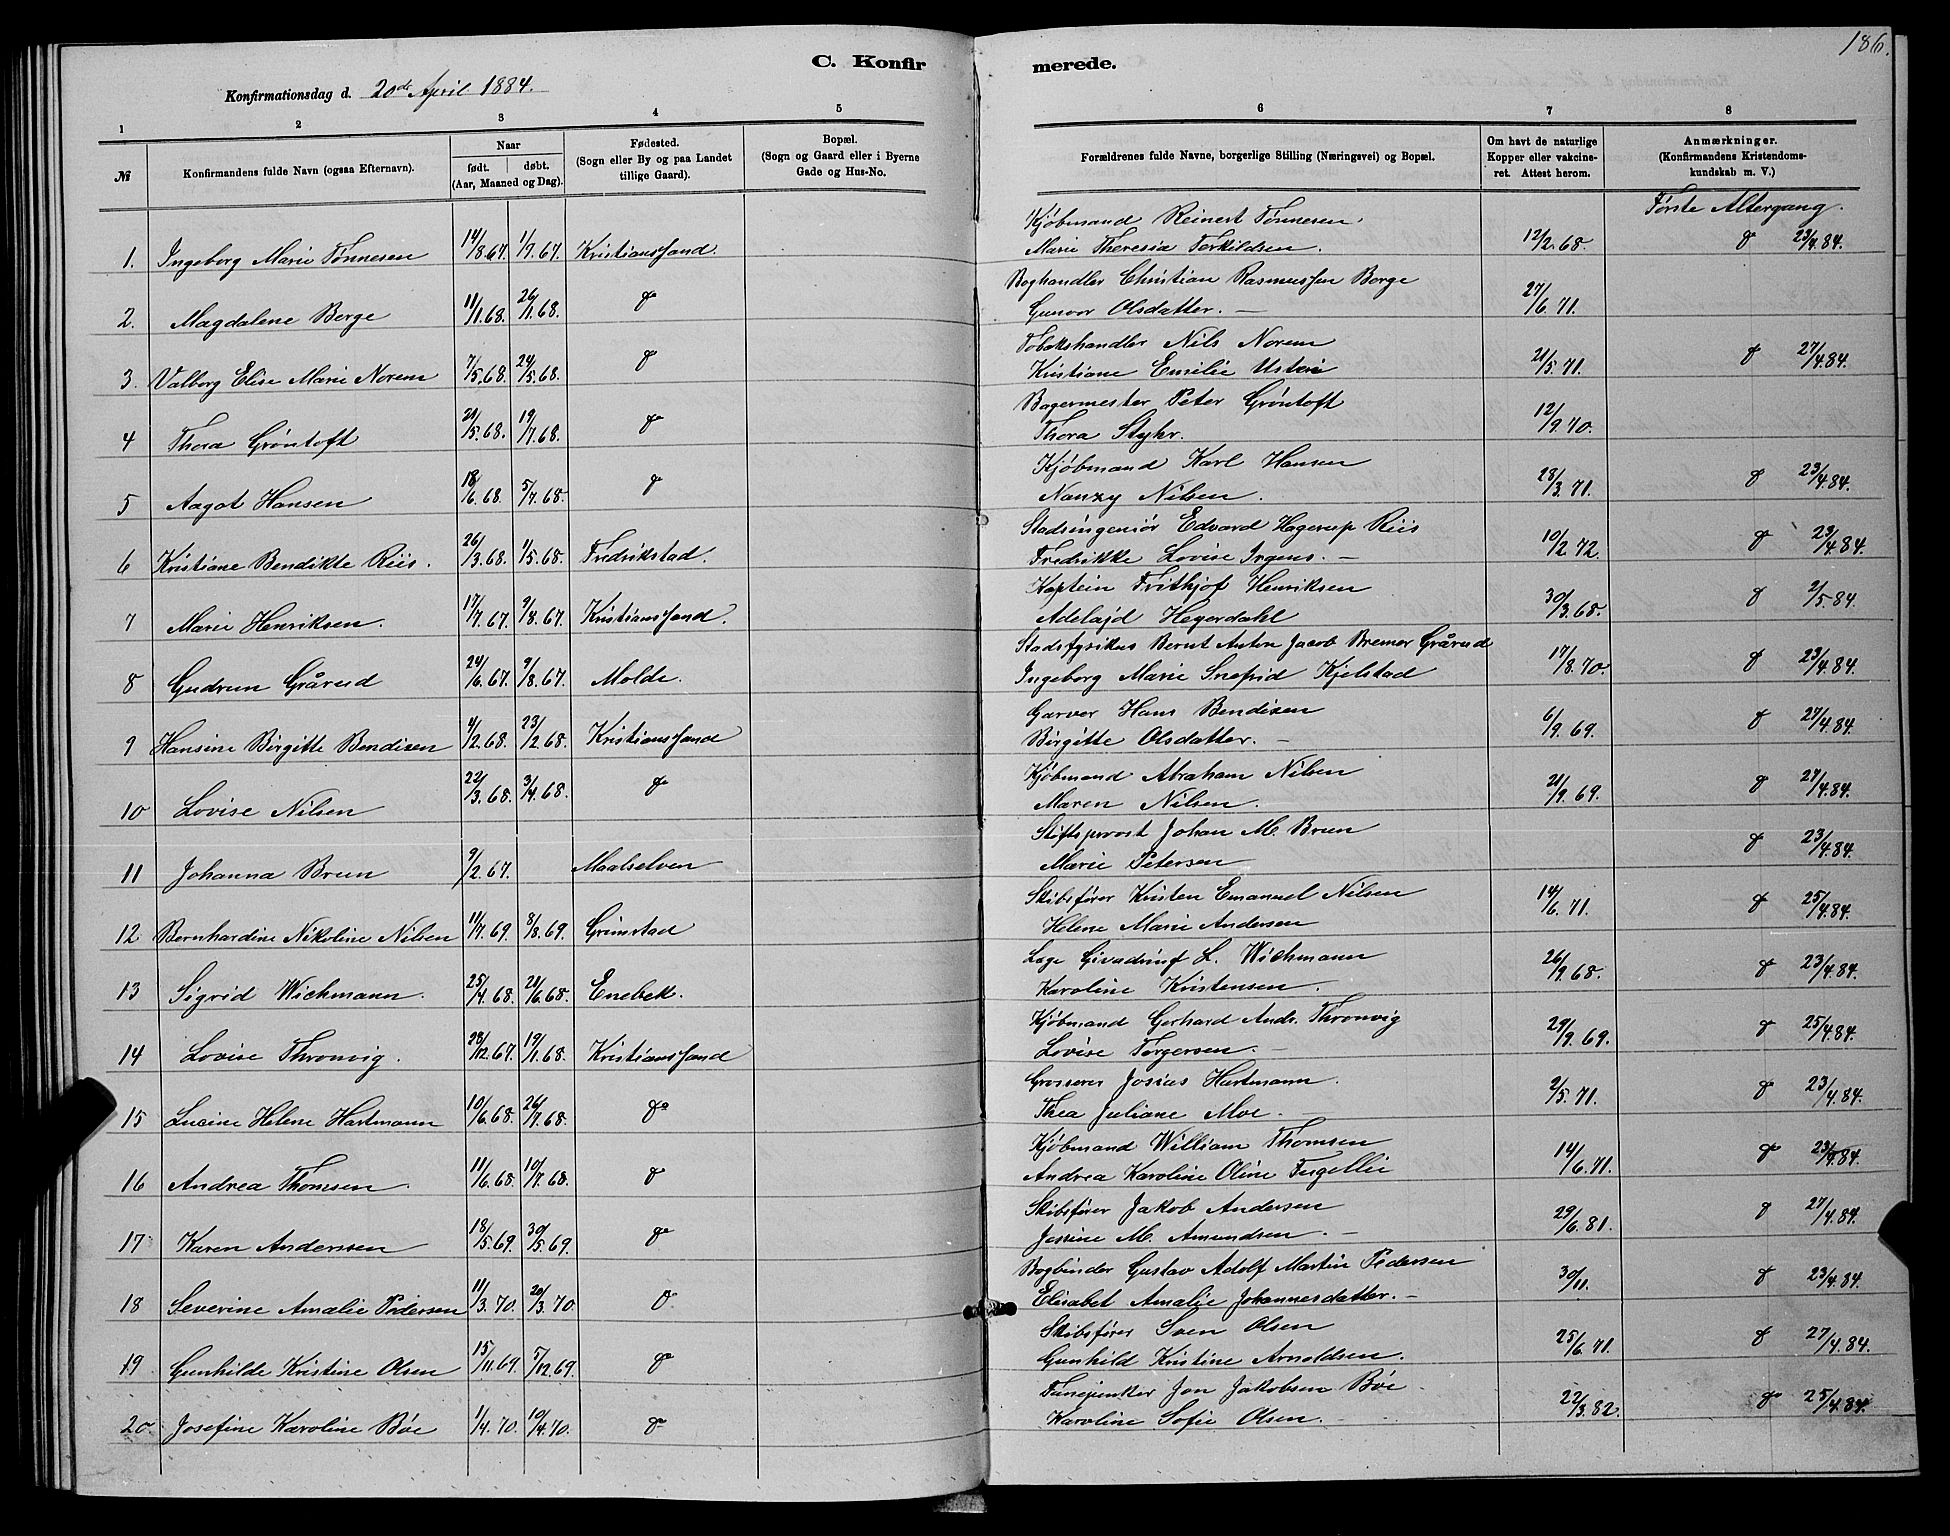 186.
C. Konfir merede.
Konfirmationsdag d. 20de April 1884.
1 2 3 4 5 6 7 8
№
Konfirmandens fulde Navn (ogsaa Efternavn).
Naar
født. døbt.
(Aar, Maaned og Dag).
Fødested.
(Sogn eller By og paa Landet
tillige Gaard).
Bopæl.
(Sogn og Gaard eller i Byerne
Gade og Hus-No.
Forældrenes fulde Navne, borgerlige Stilling (Næringsvei) og Bopæl.
Om havt de naturlige
Kopper eller vakcine-
ret. Attest herom.
Anmærkninger.
(Konfirmandens Kristendoms-
kundskab m. V.)
Første Altergang.
Kjøbmand Reinert Tønnesen.
1. Ingeborg Marie Tønnesen 14/8.67. 1/9.67. Kristianssand. Marie Theresia Terkildsen. 12/2.68. do 23/4.84.
Boghandler Christian Rasmussen Berge
2. Magdalene Berge 11/1.68. 26/1.68. do Gunvor Olsdatter. — 27/6.71.
Tobakshandler Nils Norem
3. Valborg Elise Marie Norem 7/5.68. 24/5.68. do Kristiane Emilie 21/5.71. do 27/4.84.
Bagermester Peter Grøntoft
4 Thora Grøntoft 21/5.68. 19/7.68. do Thora Styhr. 12/9.70.
Kjøbmand Karl Hansen
5 Aagot Hansen 18/6.68. 5/7.68. do Nanzy Nilsen. 28/3.71. do 23/4.84.
Stadsingeniør Edvard Hagerup Riis
6 Kristiane Bendikte Riis. 26/3.68. 1/5.68. Fredrikstad. Fredrikke Lovise Irgens. — 10/2.72. do 23/4.84.
Kaptein Frithjof Henriksen
7 Marie Henriksen. 17/7.67. 9/8.67. Kristianssand. Adelajd Hegerdahl 30/3.68. do 2/5.84.
Stadsfysikus Bernt Anton Jacob Bremer Grårud
8 Gudrun Grårud 24/6.67. 9/8.67. Molde. Ingeborg Marie Snefrid Kjelstad 17/8.70. do 23/4.84.
Garver Hans Bendixen
9 Hansine Birgitte Bendixen 4/2.68. 23/2.68. Kristianssand Birgitte Olsdatter. — 6/9.69. do 27/4.84.
Kjøbmand Abraham Nilsen
10 Lovise Nilsen 22/3.68. 3/4.68. do Maren Nilsen. 21/9.69. do 27/4.84.
Stiftsprovst Johan M. Brun
11 Johanna Brun 9/2.67. Maalselven Marie Petersen do 23/4.84.
Skibsfører Kristen Emanuel Nilsen
12 Bernhardine Nikoline Nilsen 11/7.69. 8/8.69. Grimstad Helene Marie Andersen 14/6.71. do 25/4.84.
L. Wichmann
13 Sigrid Wichmann. 25/4.68. 21/6.68. Enebek. Karoline Kristensen. 26/9.68. do 23/4.84.
Kjøbmand Gerhard Andr. Thronvig
14 Lovise Thronvig. 28/12.67. 19/1.68. Kristianssand Lovise Torgersen. — 29/9.69. do 25/4.84.
Grosserer Josias Hartmann.
15 Lucine Helene Hartmann 10/6.68. 26/7.68. do Thea Juliane Moe. — 2/5.71. do 23/4.84.
Kjøbmand William Thomsen
16 Andrea Thomsen. 11/6.68. 10/7.68. do Andrea Karoline Oline Fugellie 14/6.71. do 23/4.84.
Skibsfører Jakob Andersen
17 Karen Anderssen 18/5.69. 30/5.69. do Jossine M. Amundsen. — 29/6.81. do 27/4.84.
Bogbinder Gustav Adolf Martin Pedersen
18 Severine Amalie Pedersen 11/3.70. 20/3.70. do Elisabet Amalie Johannesdatter. — 30/11. do 23/4.84.
Skibsfører Sven Olsen
19 Gunhilde Kristine Olsen 15/11.69. 5/12.69. do Gunhild Kristine Arnoldsen. 25/6.71. do 27/4.84.
Fanejunker Jon Jakobsen Bøe
20 Josefine Karoline Bøe 1/4.70. 10/4.70. do Karoline Sofie Olsen. — 22/3.82. do 25/4.84.